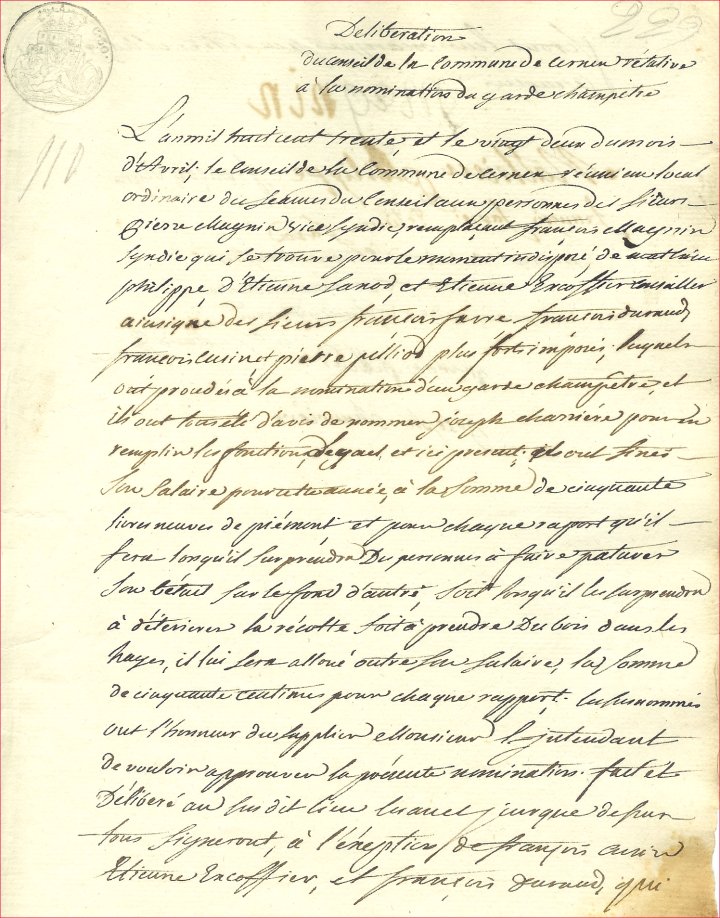 Deliberation
du Conseil de la Commune de Cernex rélative
à la nomination du garde champêtre
110
L'an mil huit cent trente, et le vingt deux du mois
d'Avril, le Conseil de la Commune de Cernex réuni au local
ordinaire des seances du Conseil aux personnes des sieurs
Pierre Magnin vice syndic, remplaçant françois Magnin
syndic qui se trouve pour le moment indisposé, de mathieu
philippe d'Etienne Sanod et Etienne Encoffier conseiller
ainsi que des sieurs françois favre françois durand,
françois Cusin et pierre pelliod plus forts imposés, lesquels
ont procédés à la nomination d'un garde champetre, et
ils ont tous été d'avis de nommer joseph charrière pour en
remplir les fonctions, Lequel, et ici present. ils ont fixés
son Salaire pour cette année, à la Somme de cinquante
livres neuves de piémont et pour chaque raport qu'il
fera lorsqu'il surprendra Des personnes à faire paturer
son bétail sur le fond d'autré, soit lorsqu'il les surprendra
à déteriorer la récolte soit à prendre Du bois dans les
hayes, il lui sera alloué outre son salaire, la Somme
de cinquante centimes pour chaque rapport. les susnommés
ont l'honneur de supplier Monsieur l'jntendant
de vouloir approuver la présente nomination. fait et
Déliberé au sus dit lieu les an et jour que dessus
tous signeront, à l'éxeption de françois Cusin
Etienne Encoffier, et françois Durand, qui